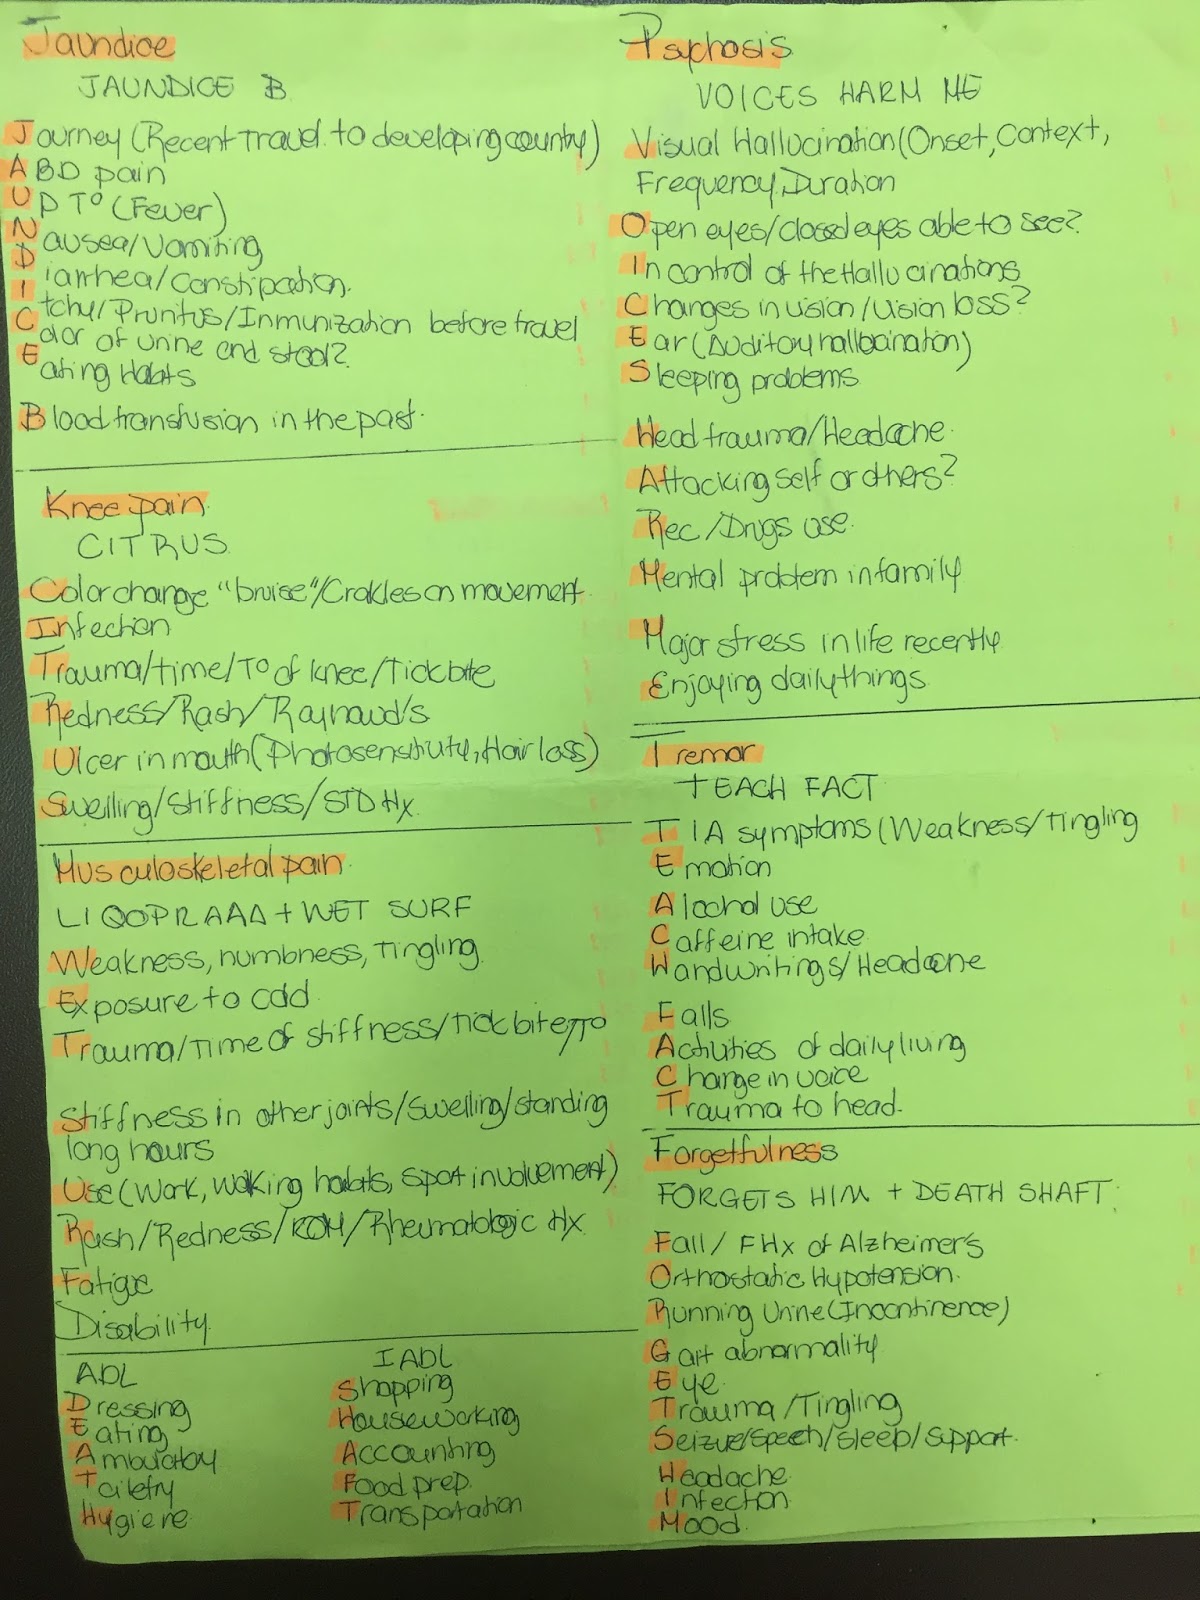 Jaundice
JAUNDICE B
Journey (Recent travel to developing country)
ABD pain
Up T° (Fever)
Nausea/Vomiting
Diarrhea/Constipation.
Itchy/Pruritus/Inmunization before travel
Color of urine and stool?
Eating Habits
Blood transfusion in the past.
Knee pain
CITRUS
Color change "bruise"/Crakles on movement
Infection
Trauma/time/T° of knee/Tick bite
Redness/Rash/Raynaud's
Ulcer in mouth (Photosensitivity, Hair loss)
Swelling/Stiffness/STD Hx
Musculoskeletal pain
LIQOPRAAA + WET SURF
Weakness, numbness, Tingling
Exposure to cold
Trauma/Time of stiffness/Tick bite/T°
Stiffness in other joints/swelling/standing
long hours
Use (Work, walking habits, sport involvement)
Rash/Redness/ROM/Rheumatologic Hx
Fatigue
Disability
ADL
Dressing
Eating
Ambulatory
Toiletry
Hygiene
IADL
Shopping
Houseworking
Accounting
Food prep.
Transportation
Psychosis
VOICES HARM ME
Visual Hallucination (Onset, Context,
Frequency, Duration
Open eyes/closed eyes able to see?
In control of the Hallucinations
Changes in vision/Vision loss?
Ear (Auditory hallocination)
Sleeping problems
Head trauma/Headache
Attacking self or others?
Rec/Drugs use
Mental problem in family
Major stress in life recently
Enjoying daily things
Tremor
TEACH FACT
TIA symptoms (Weakness/Tingling
Emotion
Alochol use
Caffeine intake
Handwritings/Headache
Falls
Activities of daily living
Change in voice
Trauma to head.
Forgetfulness
FORGETS HIM + DEATH SHAFT
Fall/FHx of Alzheimer's
Orthostatic Hypotension.
Running Urine (Incontinence)
Gait abnormality
Eye
Trauma/Tingling
Seizure/speech/sleep/support.
Headache
Infection
Mood